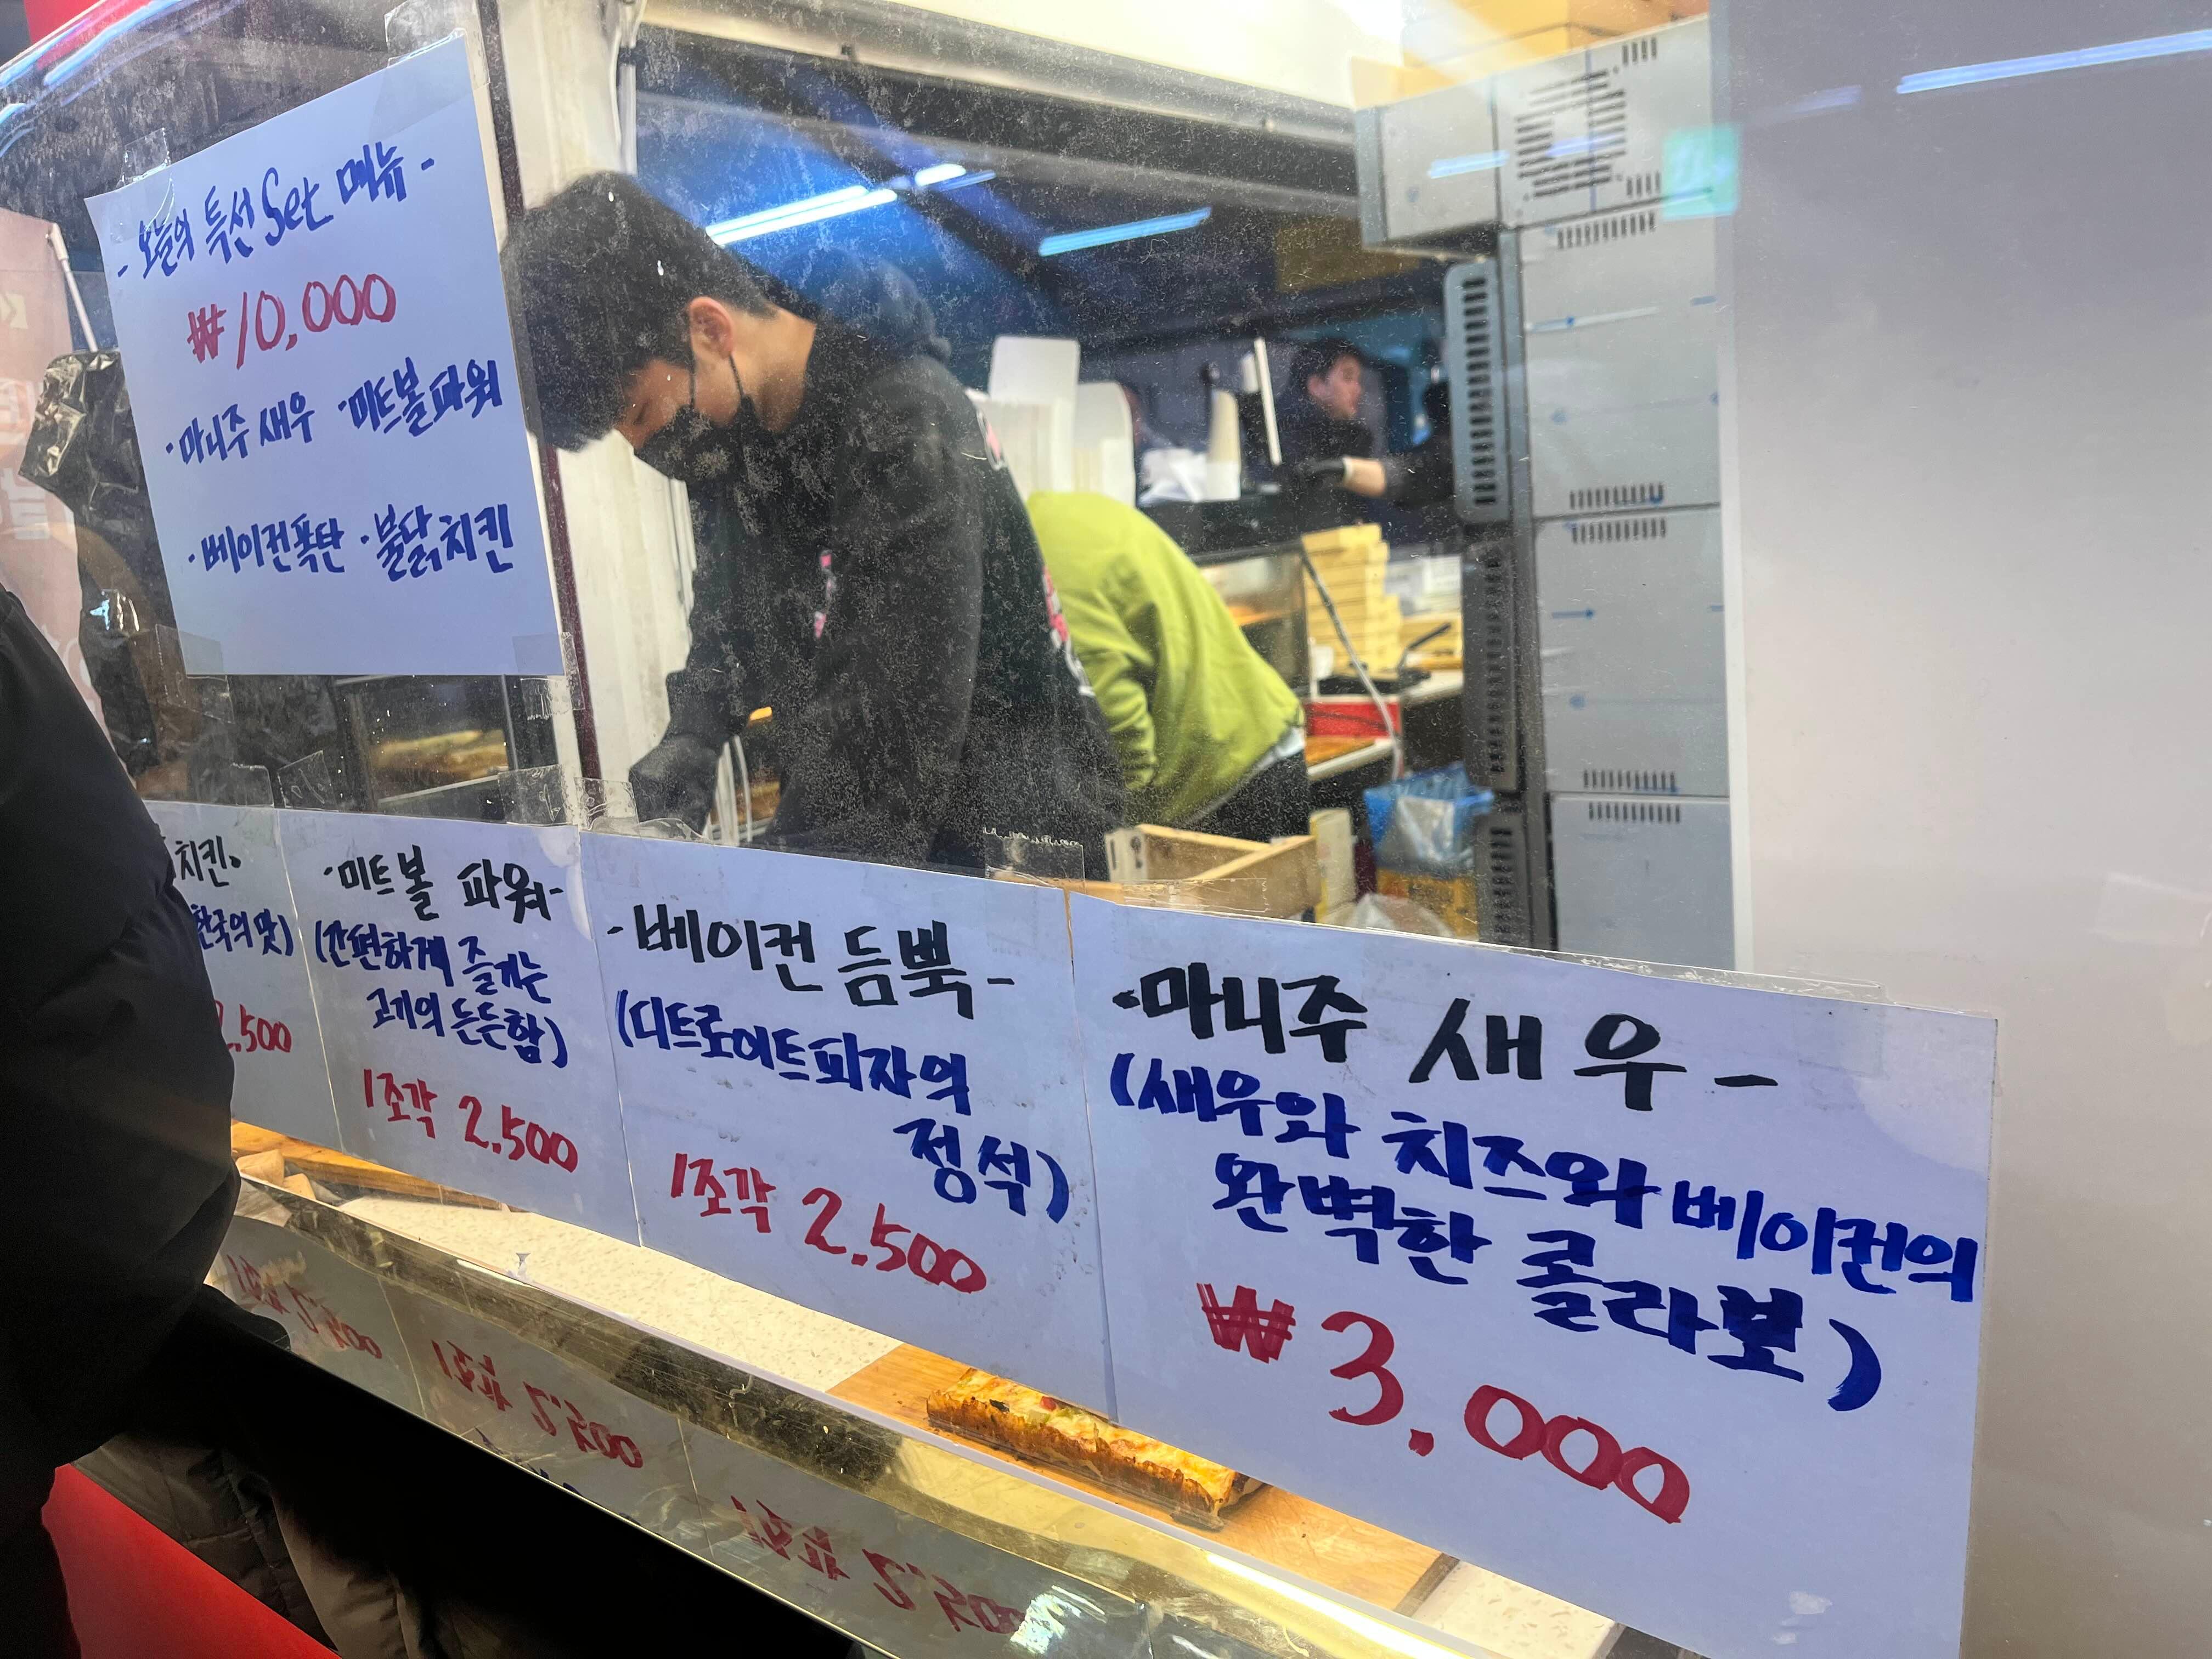 - 오늘의 특선 Set 메뉴 -
₩10,000
·마니주 새우 ·미트볼파워
·베이컨폭탄 ·불닭치킨
치킨-
한국의 맛)
2.500
-미트볼 파워-
(간편하게 즐기는
고기의 든든함)
1조각 2.500
-베이컨 듬뿍-
(디트로이트피자의
정석)
1조각 2.500
-마니주 새우-
(새우와 치즈와 베이컨의
완벽한 콜라보)
₩3.000